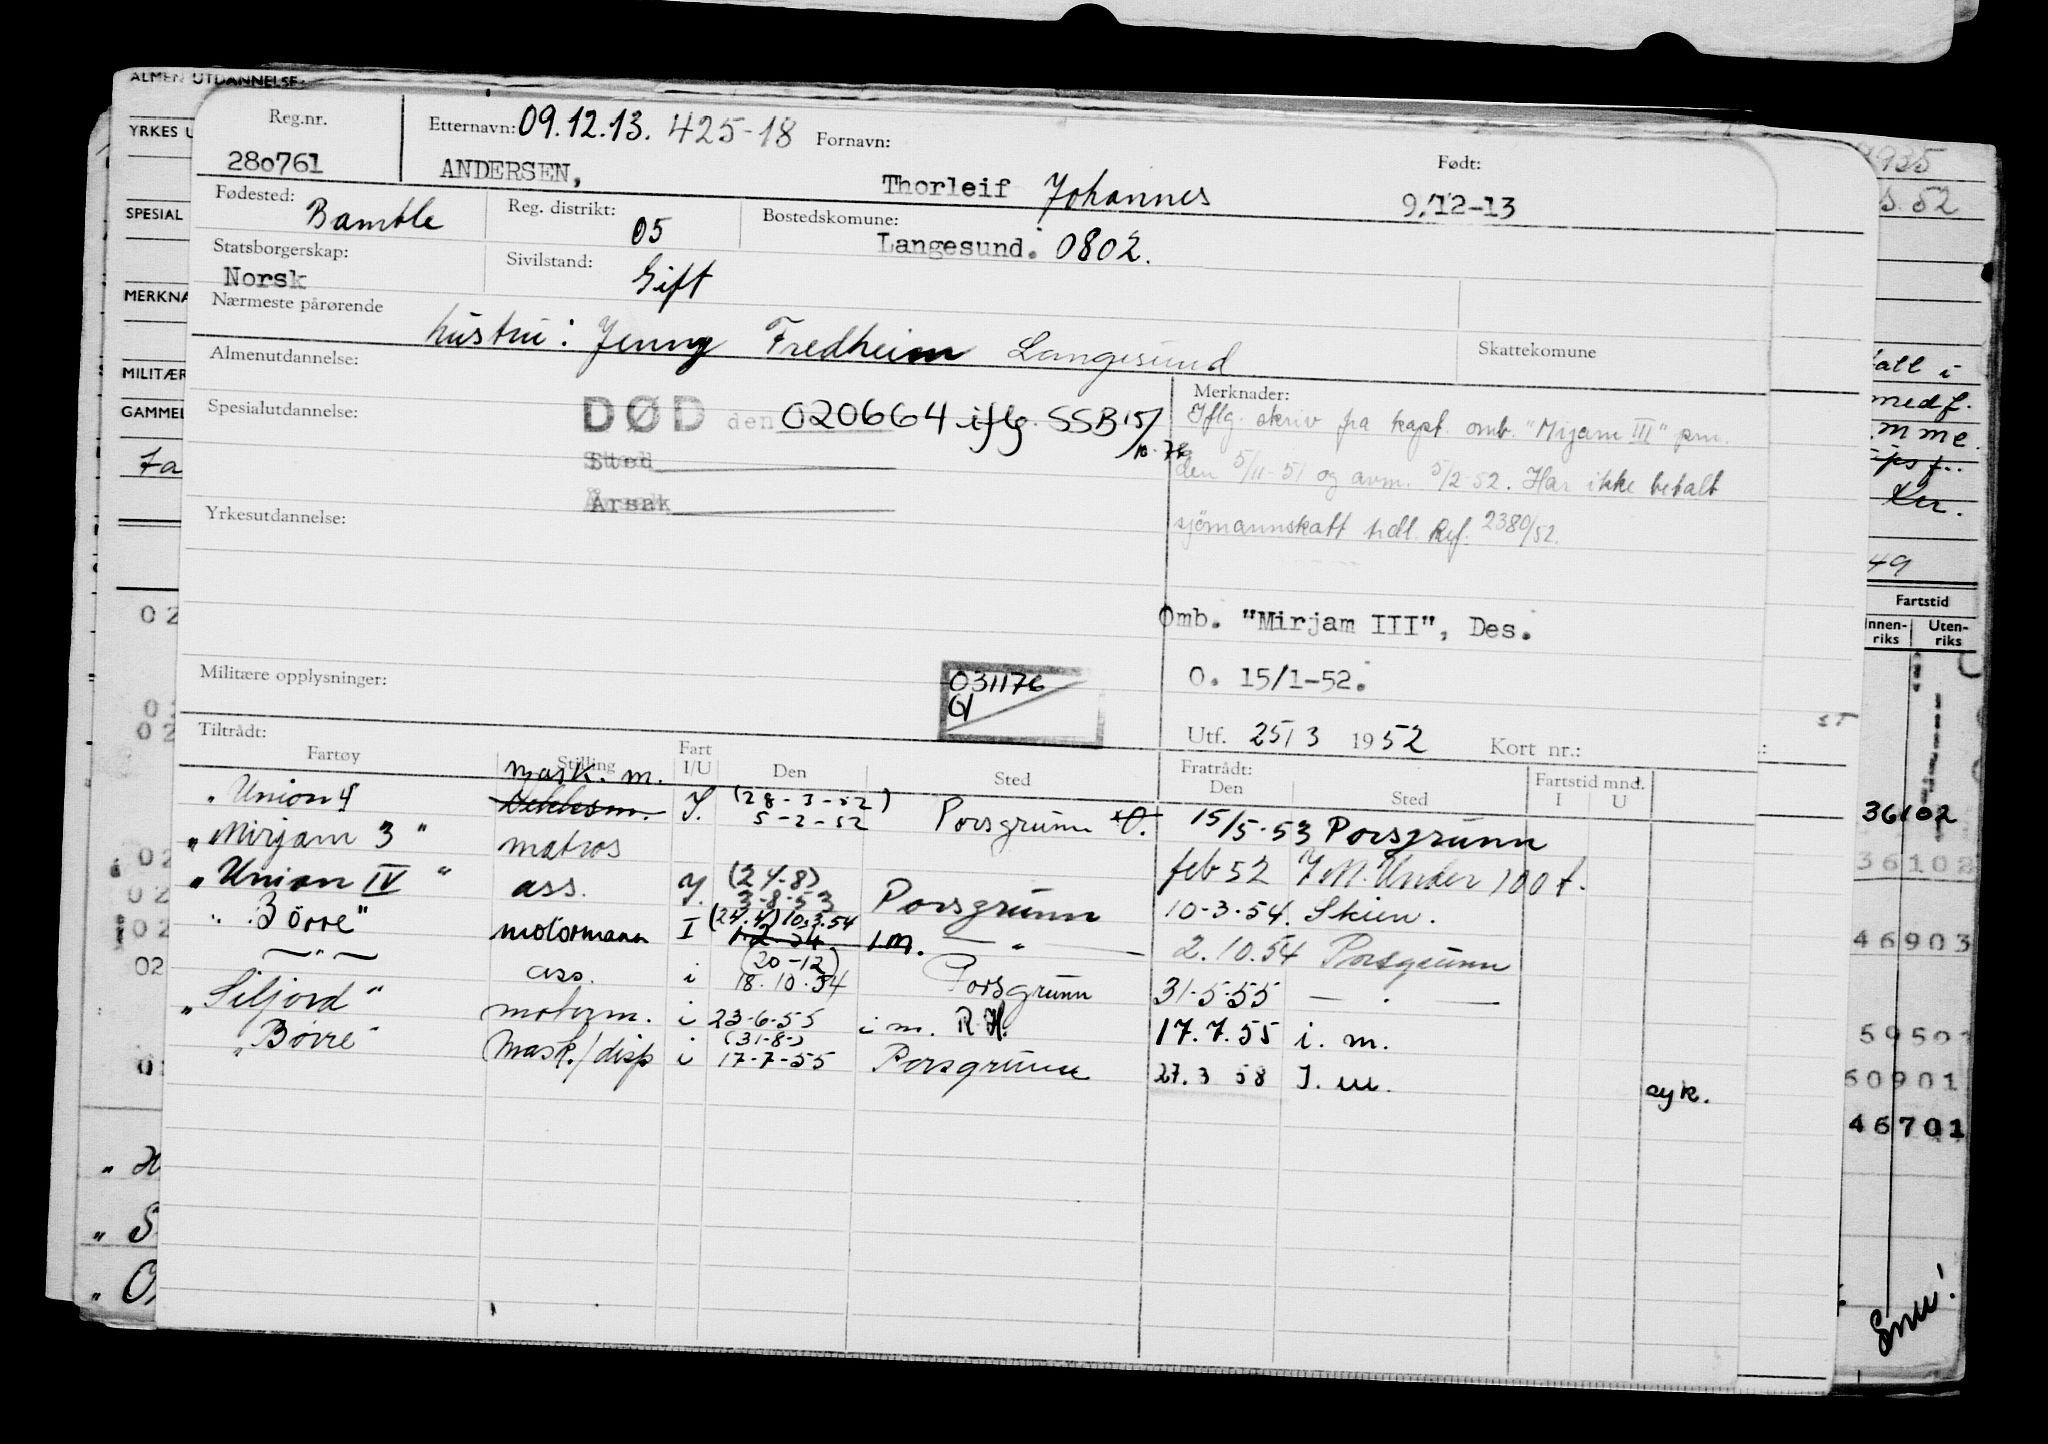 ALMEN UTDANNELSE:
YRKES U
SPESIAL
MERKNA
MILITÆR
GAMMEL
Reg.nr.
280761
Etternavn: 09.12.13. 425-18 Fornavn:
ANDERSEN, Thorleif Johannes
Født:
9/12-13
Fødested: Bamble
Reg. distrikt: 05
Bostedskomune: Langesund. 0802.
Statsborgerskap: Norsk
Sivilstand: Gift
Nærmeste pårørende
hustru: Jenny Fredheim Langesund
Skattekomune
Almenutdannelse:
Spesialutdannelse:
DØD den 020664 iflg. SSB 15/10-76
Sted
Årsak
Merknader:
Iflg. skriv fra kapt. omb. "Mirjam III" pm.
den 5/11-51 og avm. 5/2-52. Har ikke betalt
sjömannskatt tidl. Ref. 2380/52.
Yrkesutdannelse:
Omb. "Mirjam III", Des.
O. 15/1-52.
Militære opplysninger:
031176
GV
Utf. 25/3 1952 Kort nr.:
Tiltrådt:
Fartøy Stilling Fart I/U Den Sted
Fratrådt: Den Sted Fartstid mnd. I U
"Union 4 mask. m. I. (28-3-52) 5-2-52 Porsgrunn *O. 15/5-53 Porsgrunn
"Mirjam 3" matros feb 52 I M. Under 100 t.
"Union IV" ass. I. (24-8) 3-8-53 Porsgrunn 10-3-54. Skien.
"Börre" motormann I (24.4) 10.3.54 1.2 54 i.m. — " — 2.10.54 Porsgrunn
— " — ass. i (20-12) 18.10.54 Porsgrunn 31-5-55 — " —
"Seljord" motorm. i 23-6-55 i m. R.H. 17.7.55 i. m.
"Börre" Mask./disp i (31-8-) 17-7-55 Porsgrunn 27.3 58 I. m. syk.
S. 52
all i
med f.
mme
49
Fartstid
Innenriks Utenriks
36102
36102
46903
59501
60901
46701